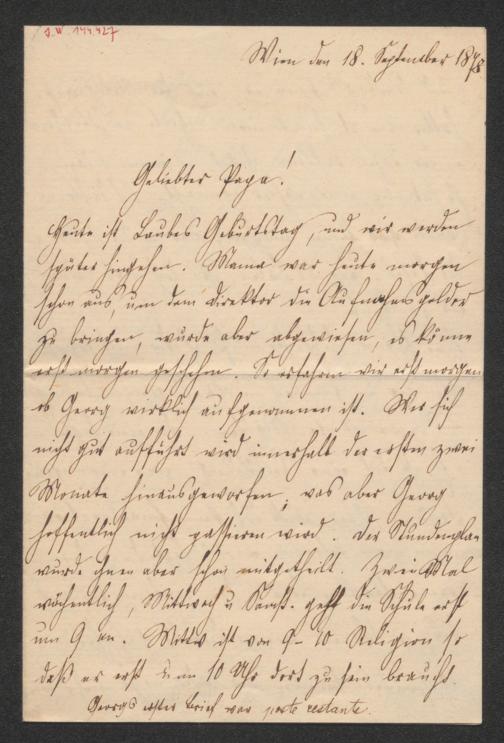 J. N. 144.427
Wien den 18. September 1878
Geliebter Papa!
Heute ist Laubes Geburtstag, und wir werden
später hingehen. Mama war heute morgen
schon aus, um dem Direktor die Aufnahmsgelder
zu bringen, wurde aber abgewiesen, es könne
erst morgen geschehen. So erfahren wir erst morgen
ob Georg wirklich aufgenommen ist. Wer sich
nicht gut aufführt wird innerhalb der ersten zwei
Monate hinausgeworfen, was aber Georg
hoffentlich nicht passieren wird. Der Stundenplan
wurde ihnen aber schon mitgetheilt. Zwei Mal
wöchentlich, Mittwoch u Samst. geht die Schule erst
um 9 an. Mittw ist von 9-10 Religion so
daß er erst um 10 Uhr dort zu sein braucht.
Georgs erster Brief war poste restante.